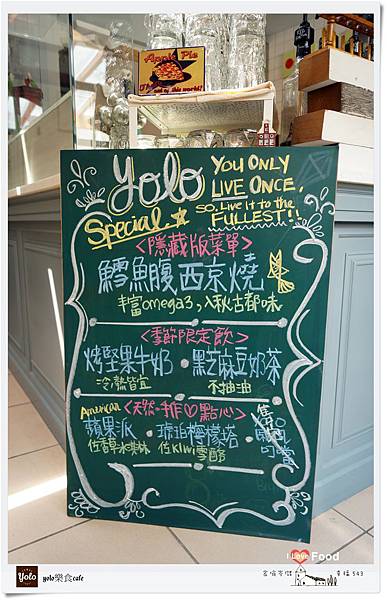 Apple Pie
Yolo
YOU ONLY
LIVE ONCE,
SO, Live it to the
FULLEST!!
Special
<隱藏版菜單>
鱈魚腹西京燒
丰富omega3,入秋古都味
<季節限定飲>
烤堅果牛奶・黑芝麻豆奶茶
冷熱皆宜
不抽油
American <天然手作♡點心>
蘋果派・琥珀檸檬塔
佐香草冰淇淋 佐KIWI雪酪
I Love Food
Yolo
yolo樂食cafe
幸福 543